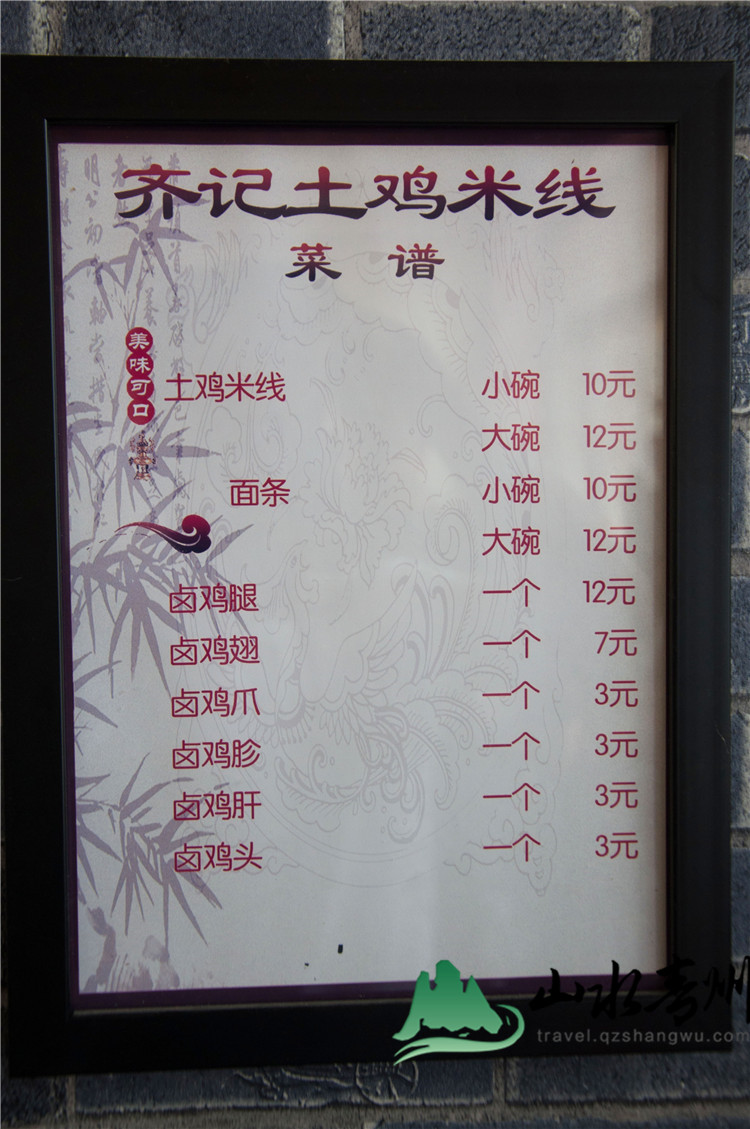 齐记土鸡米线
菜 谱
美味可口
土鸡米线 小碗 10元
大碗 12元
面条 小碗 10元
大碗 12元
卤鸡腿 一个 12元
卤鸡翅 一个 7元
卤鸡爪 一个 3元
卤鸡胗 一个 3元
卤鸡肝 一个 3元
卤鸡头 一个 3元
山水青州
travel.qzshangwu.com